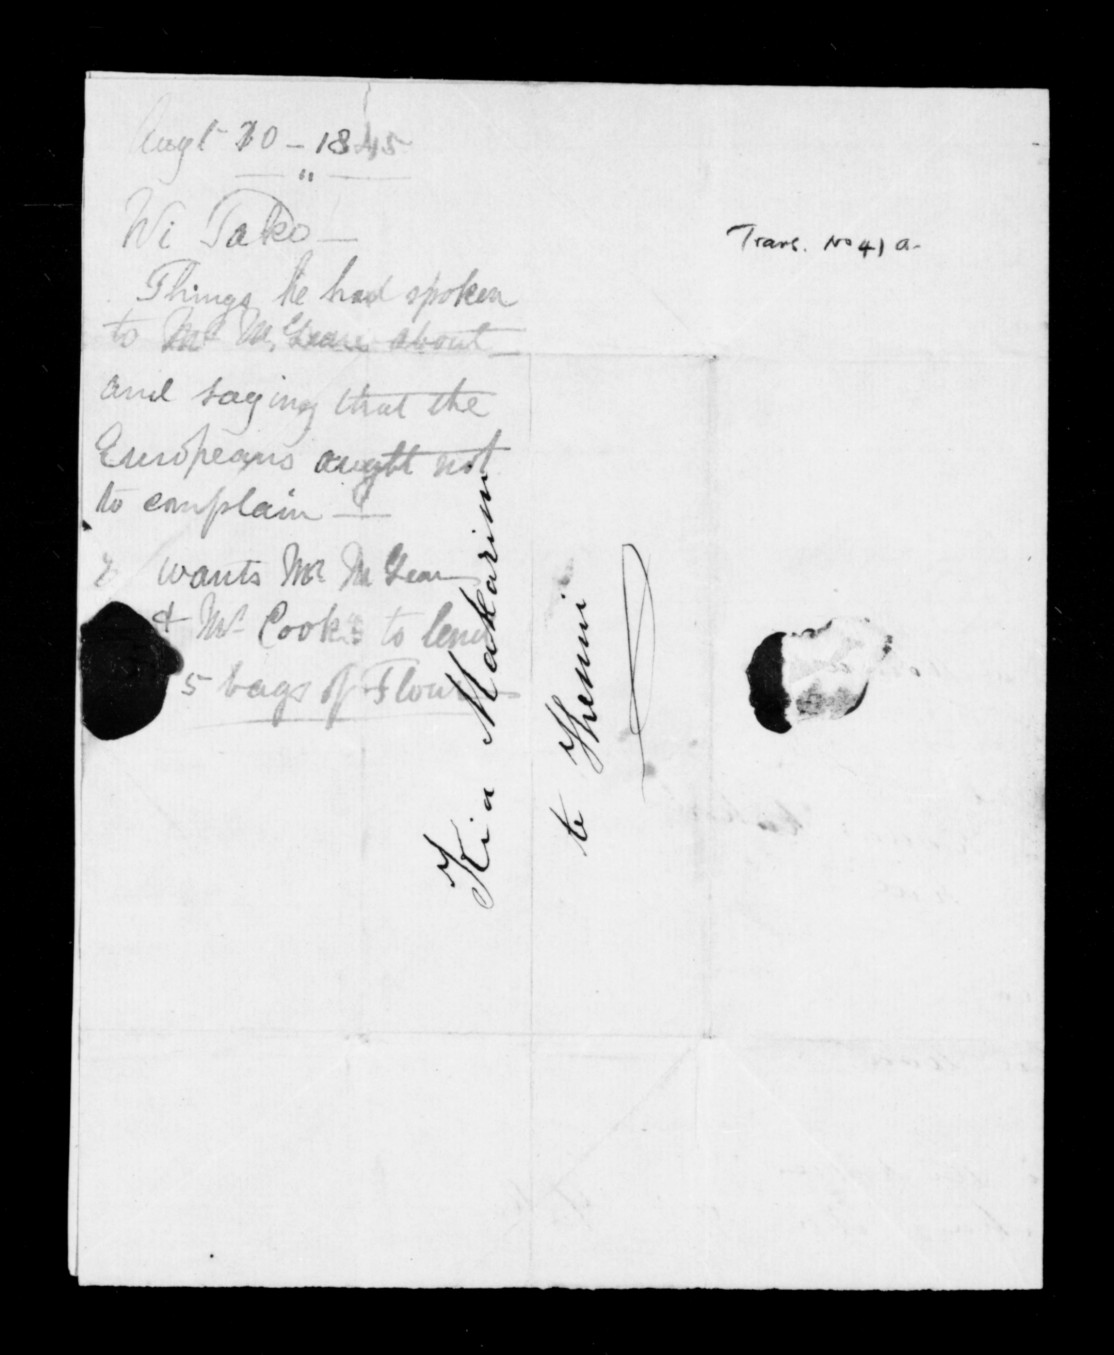 Augt 10 - 1845
"
Wi Tako —
Things he had spoken
to Mr McLean about —
and saying that the
Europeans ought not
to complain —
& wants Mr McLean
& Mr Cook to lend
5 bags of Flour —
Trans. No 41 a.
Ki a Makarini
te Ihenui